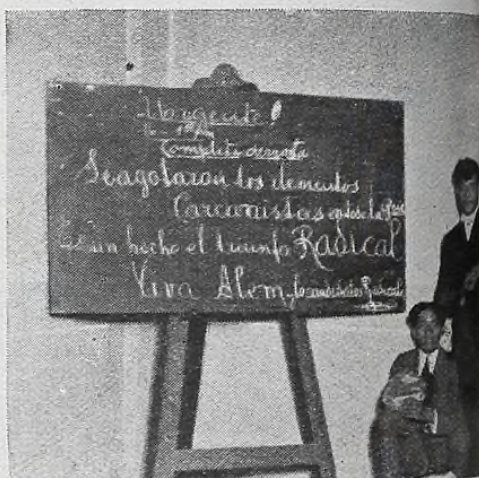 Urgente!
Completa derrota
Se agotaron los elementos
Carcanistas en toda la
Es un hecho el triunfo Radical
Viva Alem